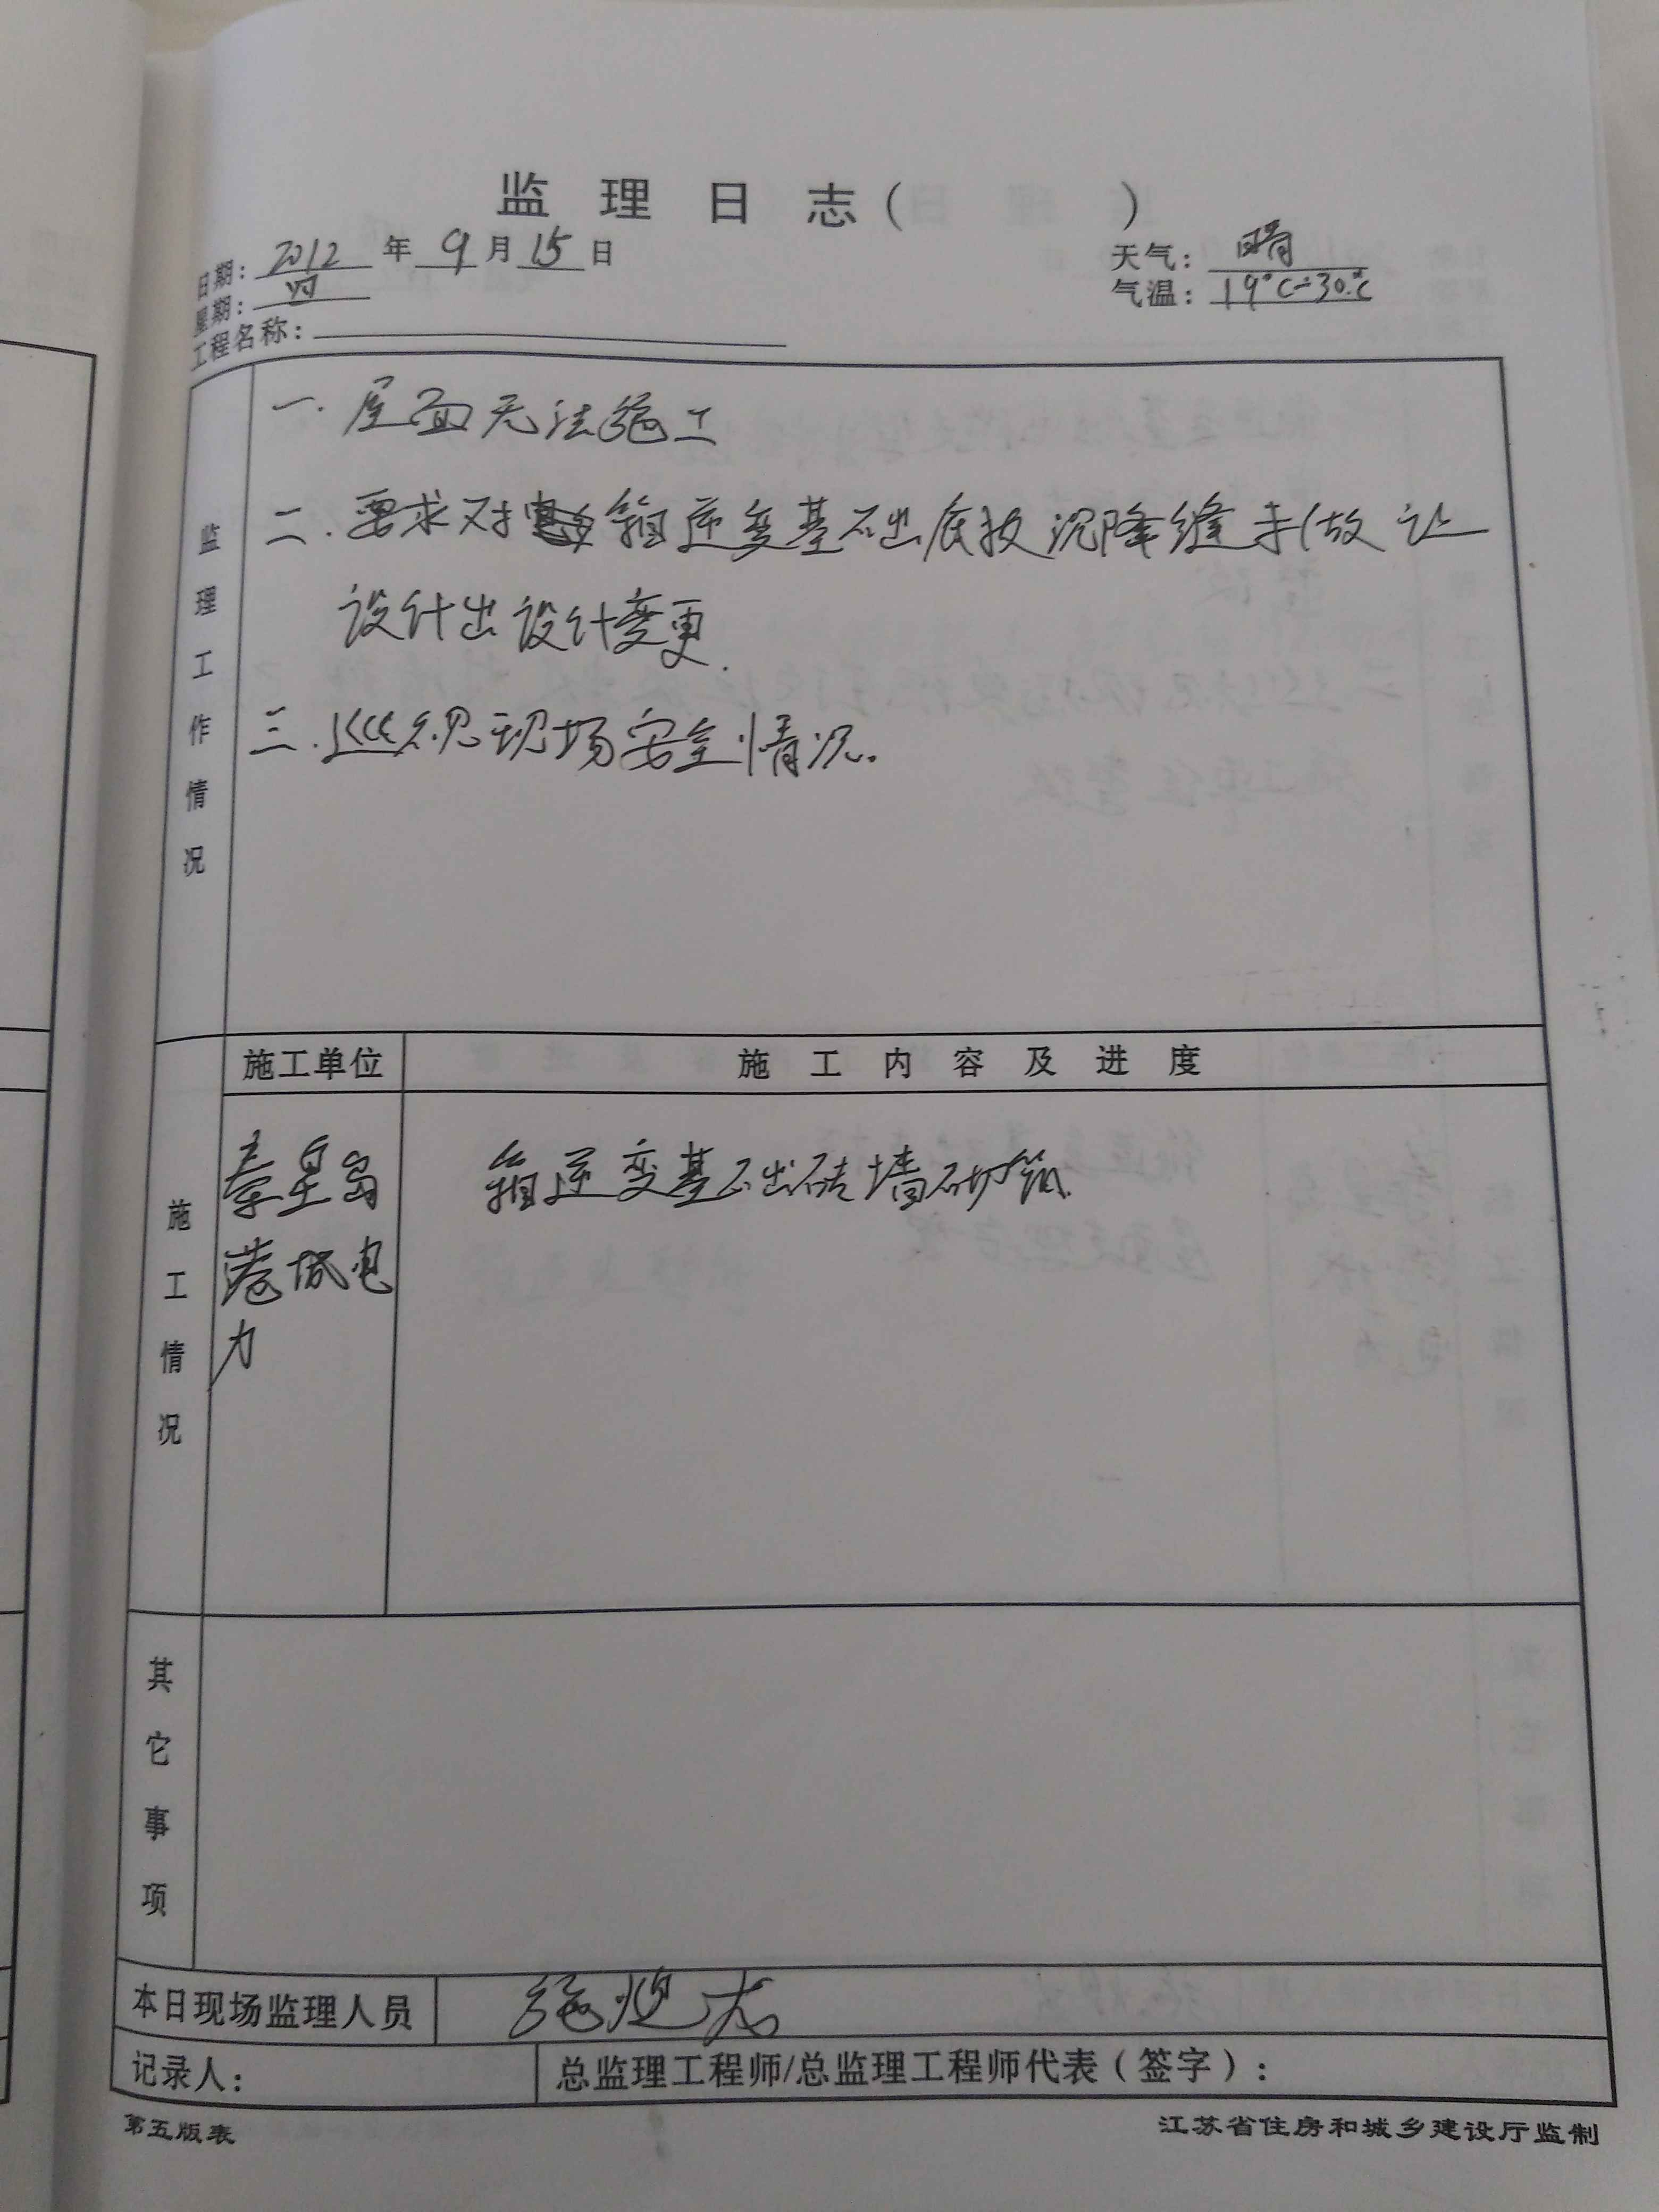 监理日志（ ）
日期：2012年9月15日
天气：晴
星期：四
气温：19℃-30℃
工程名称：
监理工作情况
一.屋面无法施工
二.要求对箱逆变基础底板沉降缝未做 让
设计出设计变更.
三.巡视现场安全情况。
施工单位 施工内容及进度
施工情况
秦皇岛
港城电
力
箱逆变基础砖墙砌筑.
其它事项
本日现场监理人员
记录人： 总监理工程师/总监理工程师代表（签字）：
第五版表 江苏省住房和城乡建设厅监制